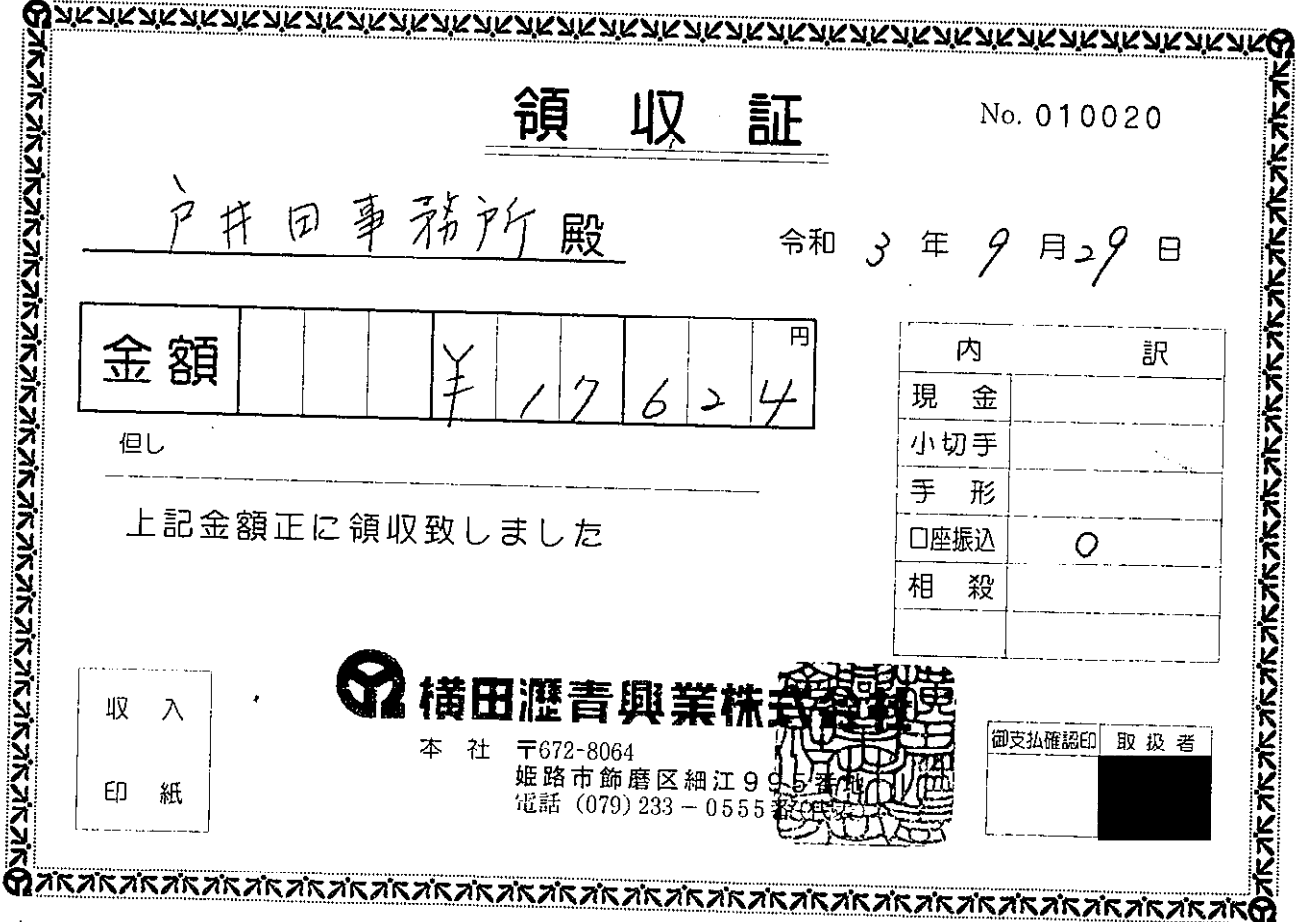 領収証
No. 010020
戸井田事務所 殿
令和 3 年 9 月 29 日
金額 ¥17624 円
但し
上記金額正に領収致しました
内訳
現金
小切手
手形
口座振込 ○
相殺
収入
印紙
横田瀝青興業株式会社
本社 〒672-8064
姫路市飾磨区細江995番地
電話 (079) 233-0555番(代表)
御支払確認印 取扱者